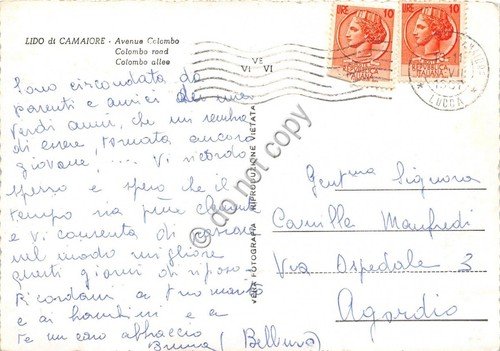 LIDO di CAMAIORE - Avenue Colombo
Colombo road
Colombo allee
LIRE 10
LIRE 10
VI VI
LUCCA
Sono circondata da
parenti e amici dei miei
verdi anni, che mi sembra
di essere, tornata ancora
giovane, .... Vi ricordo
spesso e spero che il
tempo sia più clemente
e vi consenta di passare
nel modo migliore
questi giorni di riposo.
Ricordami a tuo marito
e ai bambini e a
te un caro abbraccio
Bruna (Belluno)
VERA FOTOGRAFIA - RIPRODUZIONE VIETATA
do not copy
Gent.ma Signora
Camilla Manfredi
Via Ospedale 3
Agordio